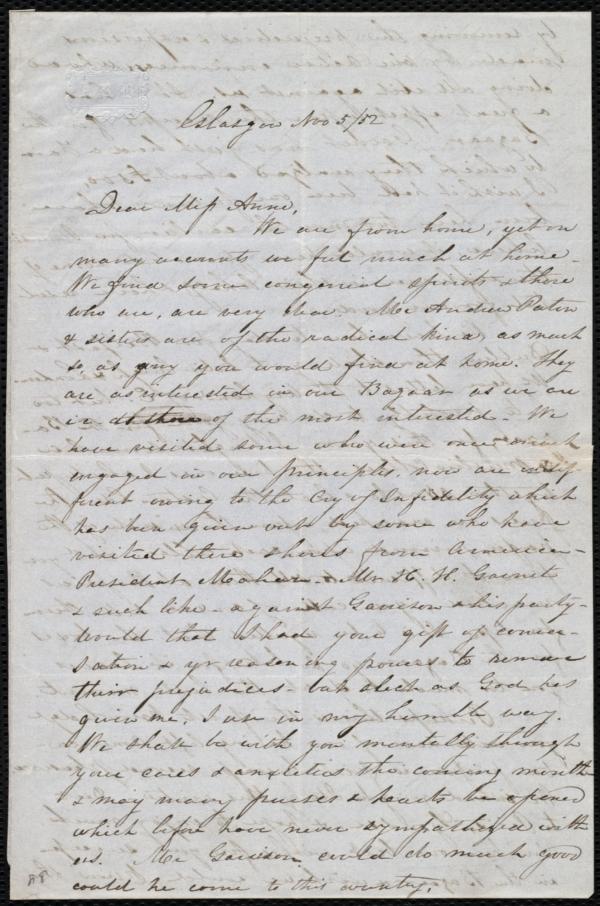 Glasgow Nov 5/52
Dear Miss Anne,
We are from home, yet on
many accounts we feel much at home -
We find some congenial spirits & those
who are, are very dear. Mr Andrew Paton
& sisters are of the radical kind, as much
so, as any you would find at home. They
are as interested in our Bazaar as we are
of the most interested - We
have visited some who were once much
engaged in our principles, now are indif
ferent owing to the Cry of Infidelity which
has been given out by some who have
visited these shores from America -
President Mahan - Mr H. H. Garnet
& such like - against Garrison & his party -
Would that I had your gift of conver-
sation & yr reasoning powers to remove
their prejudices - but such as God has
given me, I use in my humble way.
We shall be with you mentally through
your cares & anxieties the coming month
& may many purses & hearts be opened
which before have never sympathized with
us. Mr Garrison could do much good
could he come to this country,